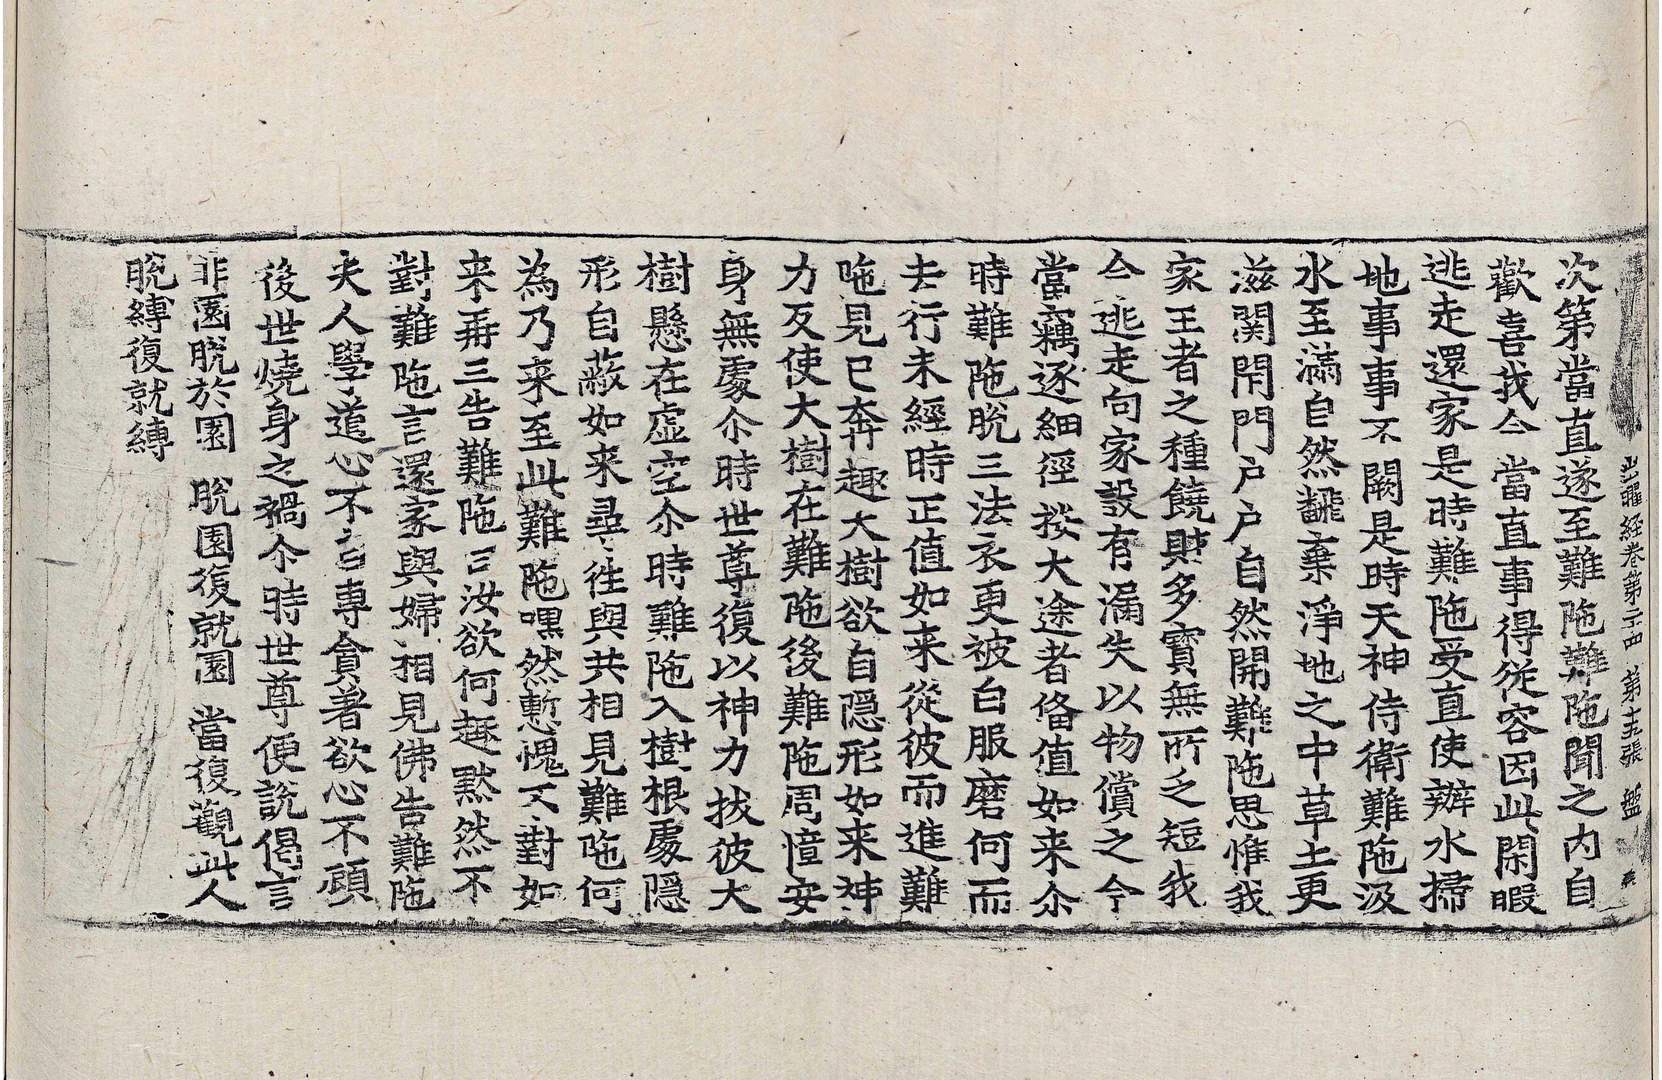 出曜經卷第二十四 第十五張 盤
次第當直遂至難陁難陁聞之内自
歡喜我今當直事得從容因此閑暇
逃走還家是時難陁受直使辦水掃
地事事不闕是時天神侍衛難陁汲
水至滿自然飜棄淨地之中草土更
滋関閇門戶戶自然開難陁思惟我
家王者之種饒財多寶無所乏短我
今逃走向家設有漏失以物償之今
當竊逐細徑按大途者俻值如来尒
時難陁脫三法衣更被白服磨何而
去行未經時正值如来從彼而進難
陁見已奔趣大樹欲自隱形如来神
力反使大樹在難陁後難陁周慞安
身無處尒時世尊復以神力拔彼大
樹懸在虛空尒時難陁入樹根處隱
形自蔽如来尋往與共相見難陁何
為乃来至此難陁嘿然慙愧又對如
来再三告難陁曰汝欲何趣黙然不
對難陁言還家與婦相見佛告難陁
夫人學道心不㫖專貪著欲心不顧
後世燒身之禍尒時世尊便說偈言
非園脫於園 脫園復就園 當復觀此人
脫縛復就縛